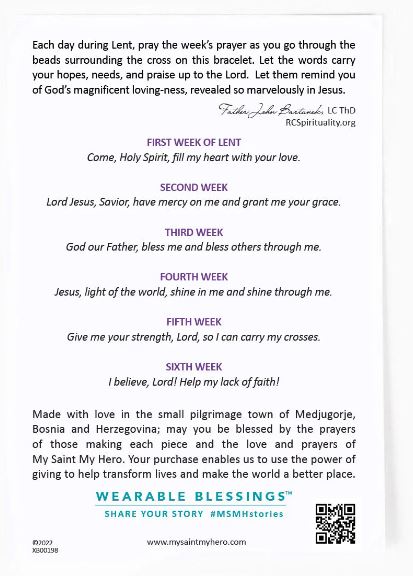 Each day during Lent, pray the week's prayer as you go through the
beads surrounding the cross on this bracelet. Let the words carry
your hopes, needs, and praise up to the Lord. Let them remind you
of God's magnificent loving-ness, revealed so marvelously in Jesus.
Father John Bartunek, LC ThD
RCSpirituality.org
FIRST WEEK OF LENT
Come, Holy Spirit, fill my heart with your love.
SECOND WEEK
Lord Jesus, Savior, have mercy on me and grant me your grace.
THIRD WEEK
God our Father, bless me and bless others through me.
FOURTH WEEK
Jesus, light of the world, shine in me and shine through me.
FIFTH WEEK
Give me your strength, Lord, so I can carry my crosses.
SIXTH WEEK
I believe, Lord! Help my lack of faith!
Made with love in the small pilgrimage town of Medjugorje,
Bosnia and Herzegovina; may you be blessed by the prayers
of those making each piece and the love and prayers of
My Saint My Hero. Your purchase enables us to use the power of
giving to help transform lives and make the world a better place.
WEARABLE BLESSINGS™
SHARE YOUR STORY #MSMHstories
©2022
XB00198
www.mysaintmyhero.com